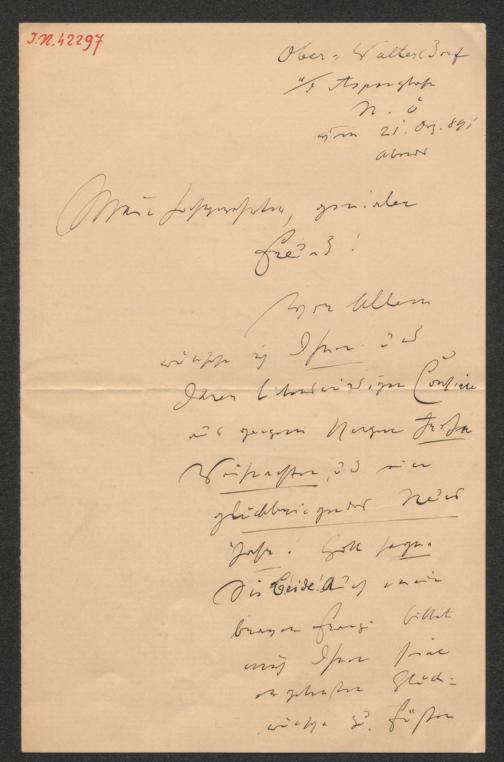 I.N. 42297
Ober-Waltersdorf
a/d Aspangbahn
N. Ö
vom 21. Dez. 891
abends
Mein hochverehrter, genialer
Freund!
Vor Allem
wünsche ich Ihnen und
Ihrer liebenswürdigen Cousine
aus ganzem Herzen frohe
Weihnachten, und ein
glückbringendes Neues
Jahr. Gott segne
Sie Beide! Auch meine
brave Franzi bittet
mich Ihnen seine
Glück-
wünsche zu Füßen